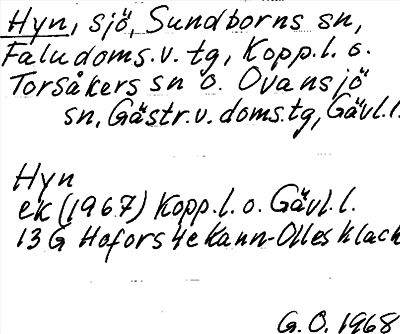 Hyn, sjö, Sundborns sn,
Falu doms.v. tg, Kopp.l. o.
Torsåkers sn o. Ovansjö
sn, Gästr.v. doms.tg, Gävl.l.
Hyn
ek (1967) Kopp.l. o. Gävl.l.
13 G Hofors 4e Kann-Olles klack
G.O. 1968